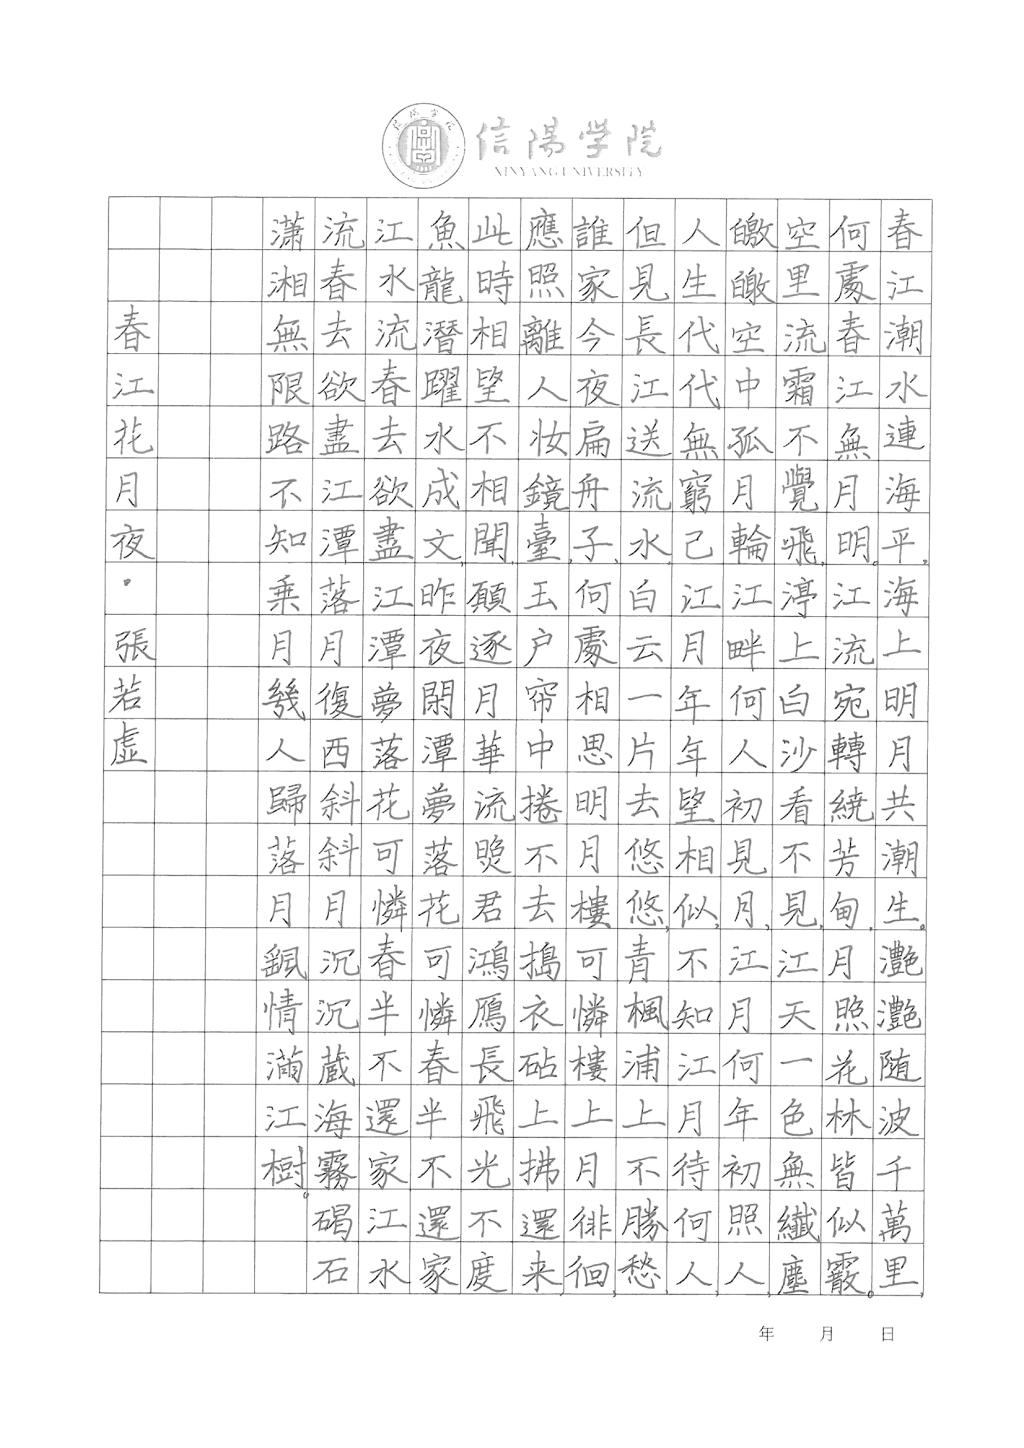 信陽学院
XINYANG UNIVERSITY
春江潮水連海平,海上明月共潮生。灩灩随波千萬里,
何處春江無月明。江流宛轉繞芳甸,月照花林皆似霰。
空里流霜不覺飛,渟上白沙看不見,江天一色無纖塵
皦皦空中孤月輪江畔何人初見月,江月何年初照人,
人生代代無窮己江月年年望相似,不知江月待何人,
但見長江送流水,白云一片去悠悠,青楓浦上不勝愁,
誰家今夜扁舟子,何處相思明月樓可憐樓上月徘徊,
應照離人妝鏡臺,玉户帘中捲不去搗衣砧上拂還来,
此時相望不相聞,願逐月華流照君鴻雁長飛光不度
魚龍潜躍水成文,昨夜閑潭夢落花可憐春半不還家
江水流春去欲盡江潭夢落花可憐春半不還家江水
流春去欲盡江潭落月復西斜斜月沉沉蔵海霧碣石
瀟湘無限路不知乘月幾人歸落月情滿江樹。
春江花月夜·張若虚
年 月 日